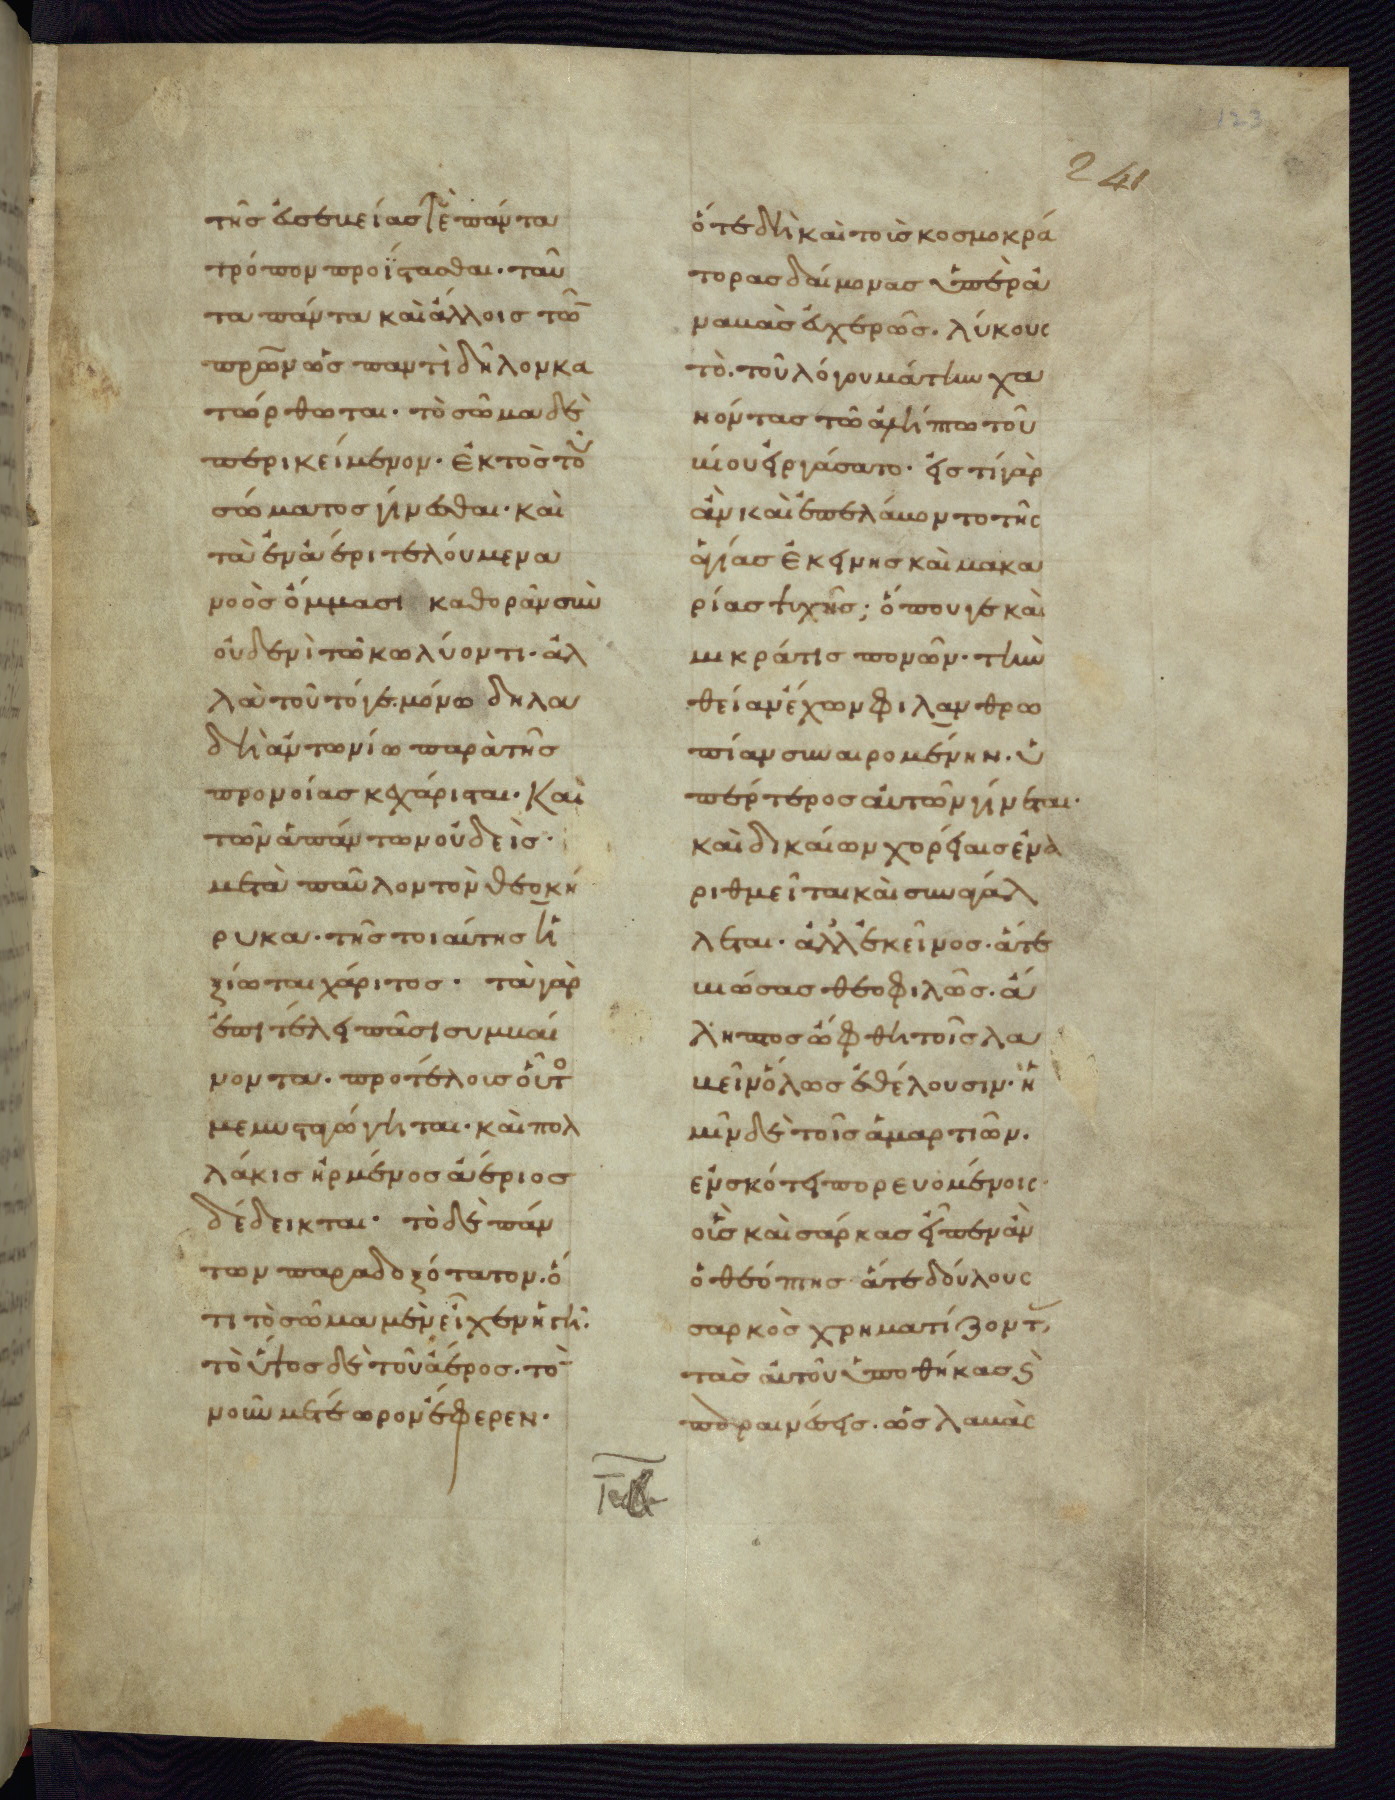 123
241
τῆς εὐσεβείας ἐπάντα
τρόπον προΐστασθαι· ταῦ
τα πάντα καὶ ἄλλοις τῶν
πρων ὡς παντὶ δῆλον κα
τώρθωται· τὸ σῶμα δὲ
περικείμενον· ἐκτὸς τοῦ
σώματος γίνεσθαι· καὶ
τὰ ἐν ἀέρι τελούμενα
νοὸς ὄμμασι καθορᾶν σὺν
οὐδενὶ τῶ κωλύοντι· ἀλ
λὰ τοῦτό γε μόνω δηλα
δὴ ἀντωνίω παρὰ τῆς
προνοίας κεχάρισται· Καὶ
τῶν ἁπάντων οὐδεὶς·
μετὰ παῦλον τὸν θεοκή
ρυκα· τῆς τοιαύτης ἠ
ξίωται χάριτος· τὰ γὰρ
ἐπὶ τέλει πᾶσι συμβαί
νοντα· πρὸ τέλους οὗτος
μεμυσταγώγηται· καὶ πολ
λάκις ἠρμένος ἀέριος
δέδεικται· τὸ δὲ πάν
των παραδοξότατον· ὅ
τι τὸ σῶμα μὲν εἶχεν ἡ γῆ·
τὸ ὕψος δὲ τοῦ ἀέρος· τὸν
νοῦν μετέωρον ἔφερεν·
ὅτε δὴ καὶ τοὺς κοσμοκρά
τορας δαίμονας ὑπερα
ναβὰς εὐχερῶς· λύκους
τὸ τοῦ λόγου μάτην χα
νόντας τῶ ἀλήπτω τοῦ
βίου εἰργάσατο· ἐς τί γὰρ
ἂν καὶ ἐπελάβοντο τῆς
ἁγίας ἐκείνης καὶ μακα
ρίας ψυχῆς; ὅπου γε καὶ
μικρά τις πονῶν· τὴν
θείαν ἔχων φιλανθρω
πίαν συναιρομένην· ὑ
πέρτερος αὐτῶν γίνεται·
καὶ δικαίων χορείαις ἐνα
ριθμεῖται καὶ συνψάλ
λεται· ἀλλ' ἐκεῖνος· ἅτε
βιώσας θεοφιλῶς· ἄ
ληπτος ὤφθη τοῖς λα
βεῖν ὅλως ἐθέλουσιν· ἡ
μῖν δὲ τοῖς ἁμαρτιῶν·
ἐν σκότει πορευομένοις·
οὓς καὶ σάρκας εἶπεν ἂν
ὁ θεόπτης ἅτε δούλους
σαρκὸς χρηματίζοντ
τὰς αὐτοῦ ὑποθήκας καὶ
παραινέσεις· ὡς λαβὰς